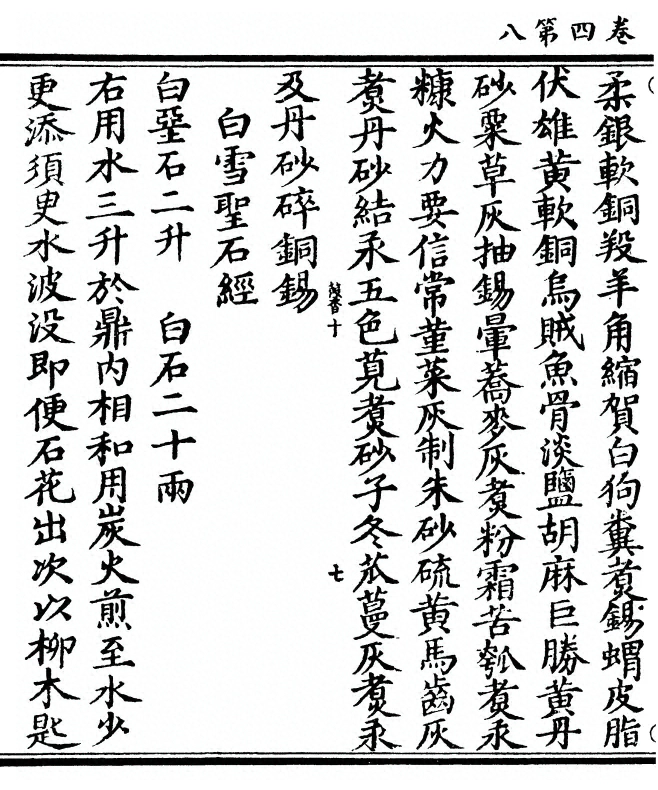 卷四第八
柔銀軟銅羖羊角縮賀白狗糞煑錫蝟皮脂
伏雄黃軟銅烏賊魚骨淡鹽胡麻巨勝黃丹
砂粟草灰抽錫暈蕎麥灰煑粉霜苦瓠煑汞
糠火力要信常董菜灰制朱砂硫黃馬齒灰
煑丹砂結汞五色莧煑砂子冬苽蔓灰煑汞
七
及丹砂碎銅錫
白雪聖石經
白堊石二升 白石二十兩
右用水三升於鼎內相和用炭火煎至水少
更添須臾水波没即便石花出次以柳木匙